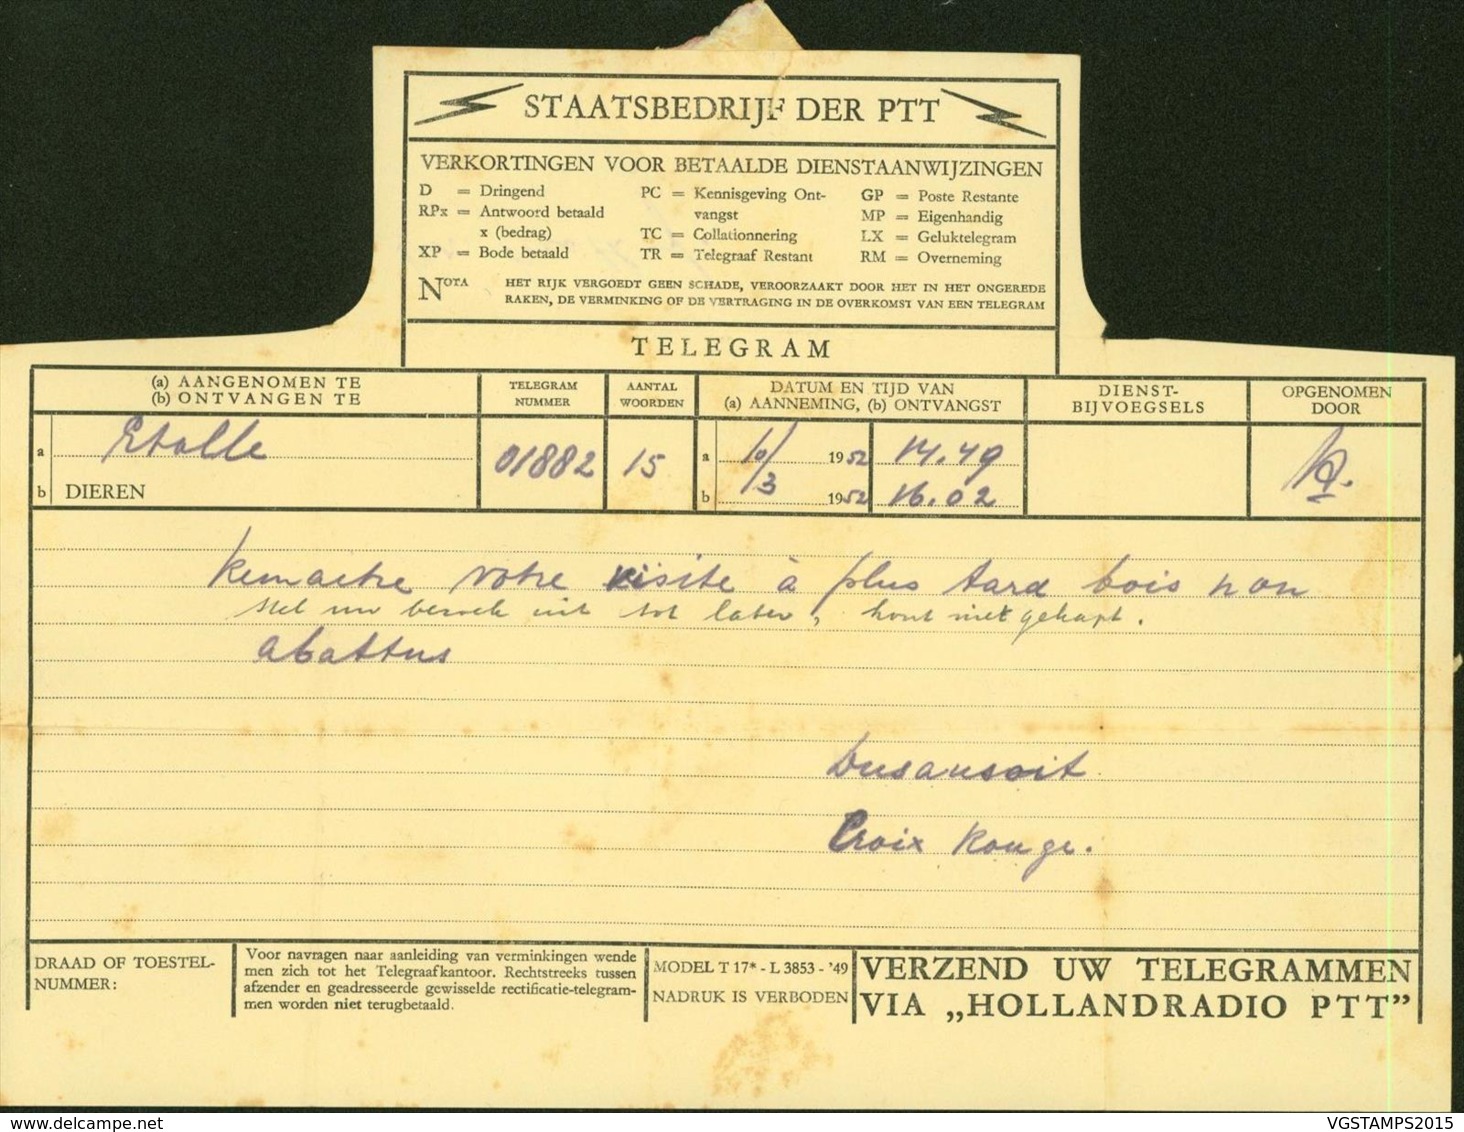 STAATSBEDRIJF DER PTT
VERKORTINGEN VOOR BETAALDE DIENSTAANWIJZINGEN
D = Dringend PC = Kennisgeving Ont- GP = Poste Restante
RPx = Antwoord betaald vangst MP = Eigenhandig
x (bedrag) TC = Collationnering LX = Geluktelegram
XP = Bode betaald TR = Telegraaf Restant RM = Overneming
NOTA HET RIJK VERGOEDT GEEN SCHADE, VEROORZAAKT DOOR HET IN HET ONGEREDE
RAKEN, DE VERMINKING OF DE VERTRAGING IN DE OVERKOMST VAN EEN TELEGRAM
TELEGRAM
(a) AANGENOMEN TE TELEGRAM AANTAL DATUM EN TIJD VAN DIENST- OPGENOMEN
(b) ONTVANGEN TE NUMMER WOORDEN (a) AANNEMING, (b) ONTVANGST BIJVOEGSELS DOOR
a Etalle 01882 15 a 10/ 1952 14.49
b DIEREN b /3 1952 16.02
Remaetre votre visite à plus tard bois non
stel uw bezoek uit tot later, hout niet gekapt.
abattus
Dusausoit
Croix Rouge.
DRAAD OF TOESTEL- Voor navragen naar aanleiding van verminkingen wende MODEL T 17* - L 3853 - '49 VERZEND UW TELEGRAMMEN
NUMMER: men zich tot het Telegraafkantoor. Rechtstreeks tussen NADRUK IS VERBODEN VIA „HOLLANDRADIO PTT”
afzender en geadresseerde gewisselde rectificatie-telegram-
men worden niet terugbetaald.
VGSTAMPS2015